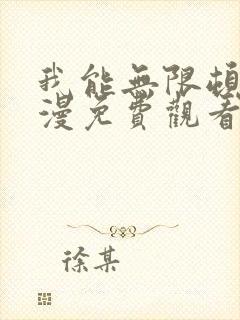 我能無限頓
漫免費觀看
徐某